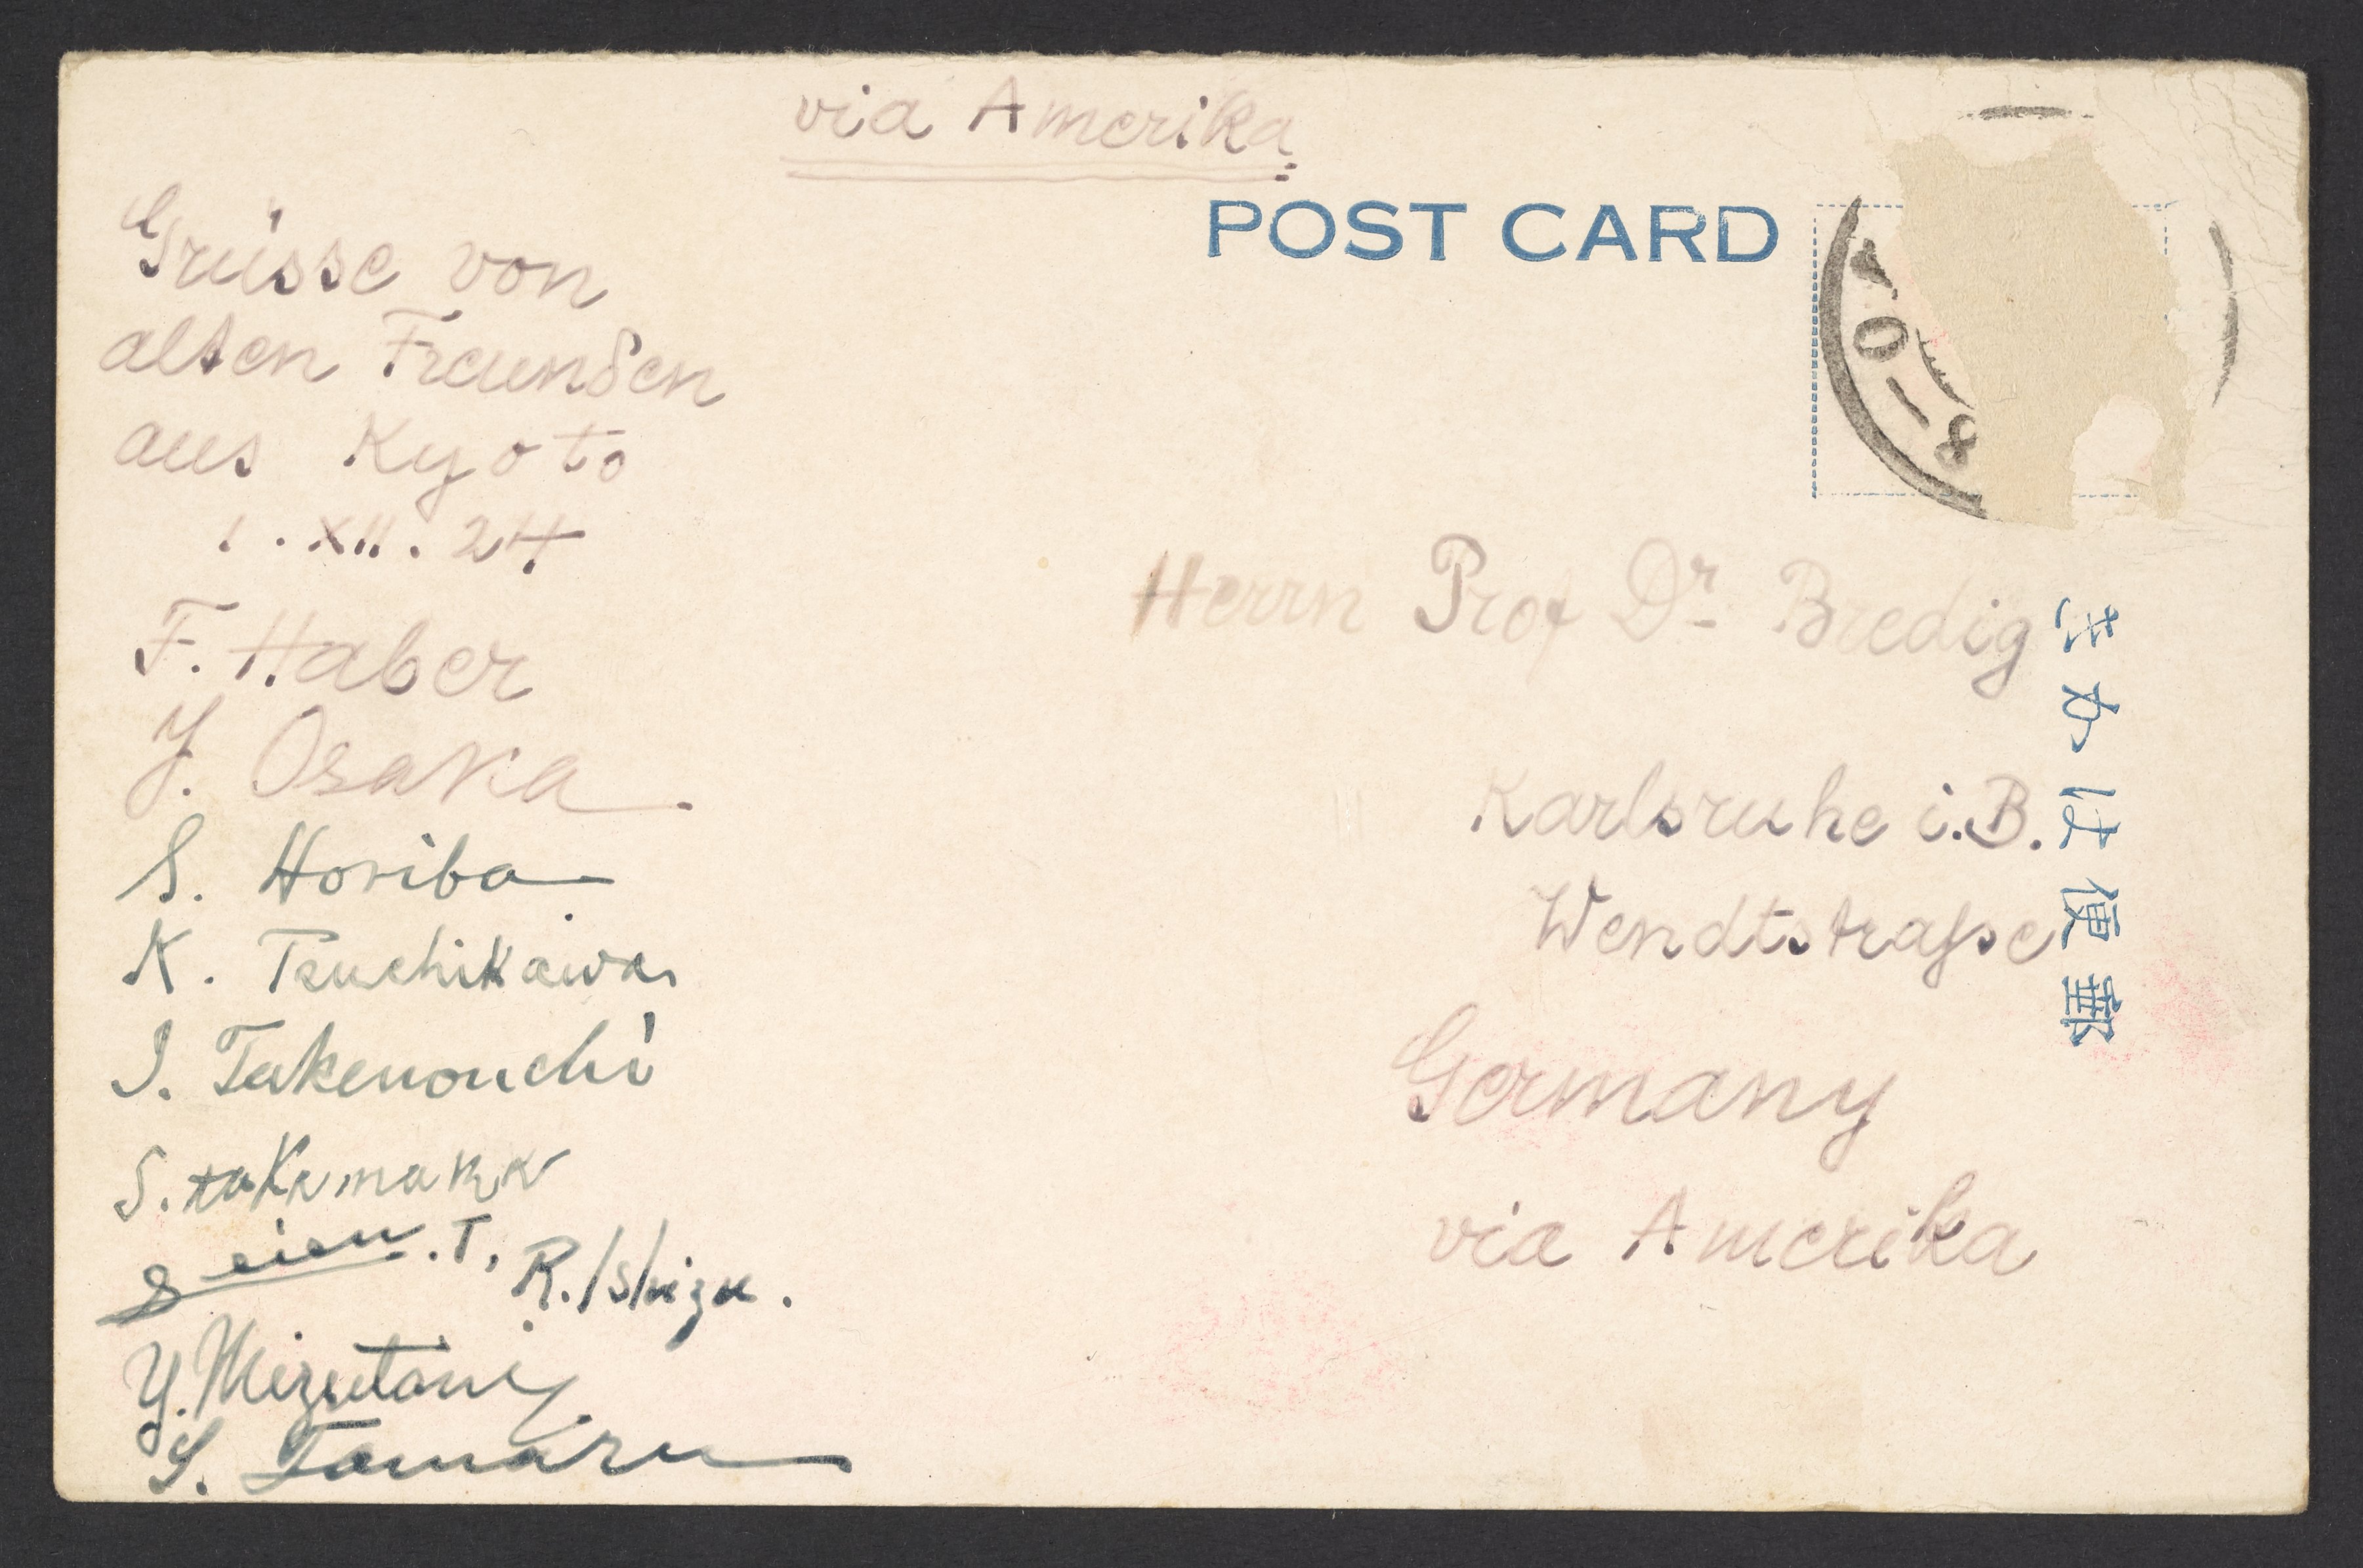 via Amerika
POST CARD
0-8
Grüsse von
alten Freunden
aus Kyoto
1. XII. 24
F. Haber
Y. Osaka
S. Horiba
K. Tsuchikawa
I. Takenouchi
S.
Seien. T. R. Ishizu.
Y. Mizutani
S. Tamaru
Herrn Prof Dr. Bredig
Karlsruhe i. B.
Wendtstraße
Germany
via Amerika
きかは便郵